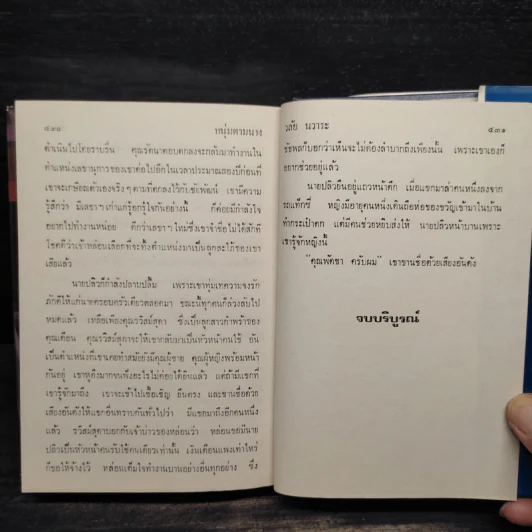 ๔๓๘
หนุ่มตามนาง
ดำเนินไปโดยราบรื่น คุณรัตนาตอบตกลงจะกลับมาทำงานใน
ตำแหน่งเลขานุการของเขาต่อไปอีกในเวลาประมาณสองปีก่อนที่
เขาจะเกษียณตัวเองจริง ๆ ตามที่ตกลงไว้กับชัยพัฒน์ เขามีความ
รู้สึกว่า มีเลขาฯ เก่าแก่รู้อกรู้ใจกันอย่างนี้ ก็ค่อยมีกำลังใจ
อยากไปทำงานหน่อย ดีกว่าเลขาฯ ใหม่ซึ่งเขาจำชื่อไม่ได้สักที
โชคดีที่ว่าเจ้าหล่อนเลือกที่จะทิ้งตำแหน่งมาเป็นลูกสะใภ้ของเขา
เสียแล้ว
นายปลิวก็กำลังปลาบปลื้ม เพราะเขาทุ่มเทความจงรัก
ภักดีให้แก่นายครอบครัวเดียวตลอดมา ขณะนี้ทุกคนก็ล่วงลับไป
หมดแล้ว เหลือเพียงคุณรวิสม์สุดา ซึ่งเป็นลูกสาวกำพร้าของ
คุณเดือน คุณรวิสม์สุดาจะให้เขากลับมาเป็นหัวหน้าคนใช้ อัน
เป็นตำแหน่งที่เขาเคยทำสมัยยังมีคุณผู้ชาย คุณผู้หญิงพร้อมหน้า
กันอยู่ เขาหูตึงมากจนฟังอะไรไม่ค่อยได้ยินแล้ว แต่ถ้ามีแขกที่
เขารู้จักมาถึง เขาจะเข้าไปเชื้อเชิญ ยืนตรง และขานชื่อด้วย
เสียงอันดังให้แขกอื่นทราบกันทั่วไปว่า มีแขกมาถึงอีกคนหนึ่ง
แล้ว รวิสม์สุดาบอกกับเจ้าบ่าวของหล่อนว่า หล่อนขอมีนาย
ปลิวเป็นหัวหน้าคนรับใช้คนเดียวเท่านั้น เงินเดือนแพงเท่าไหร่
ก็ขอให้จ้างไว้ หล่อนเต็มใจทำงานบ้านอย่างอื่นทุกอย่าง ซึ่ง
วลัย นวาระ
๔๓๙
ชัยพลก็บอกว่าเห็นจะไม่ต้องลำบากถึงเพียงนั้น เพราะเขาเองก็
อยากช่วยอยู่แล้ว
นายปลิวยืนอยู่แถวหน้าตึก เมื่อแขกมาล่าคนหนึ่งลงจาก
รถแท็กซี่ หญิงมีอายุคนหนึ่งเดินถือห่อของขวัญเข้ามาในบ้าน
ทำกระเป๋าตก แต่มีคนช่วยหยิบส่งให้ นายปลิวหน้าบานเพราะ
เขารู้จักหญิงนี้
"คุณพัดชา ครับผม" เขาขานชื่อด้วยเสียงอันดัง
จบบริบูรณ์